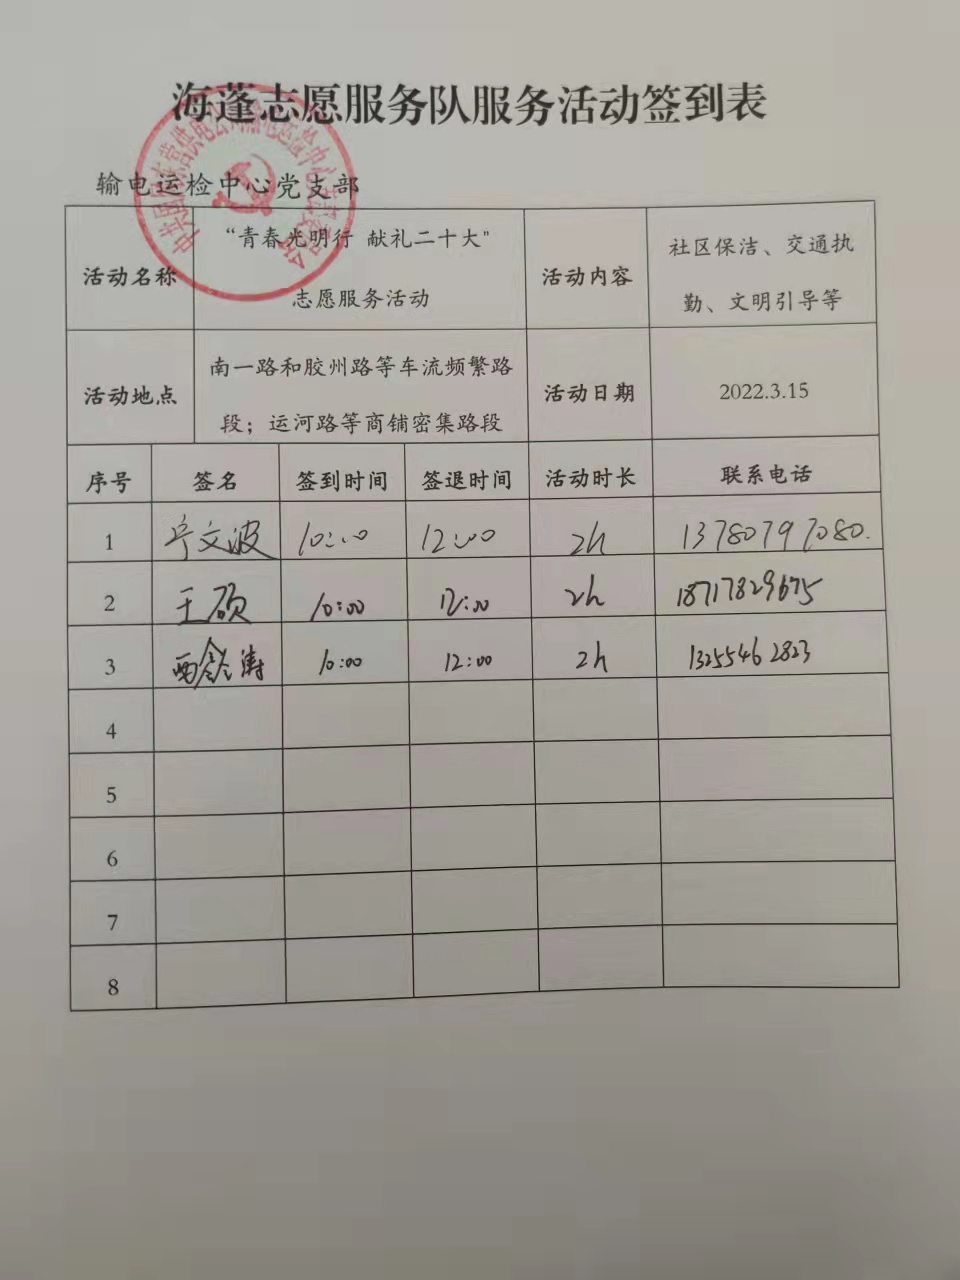 海蓬志愿服务队服务活动签到表
输电运检中心党支部
活动名称
“青春光明行 献礼二十大"
志愿服务活动
活动内容
社区保洁、交通执
勤、文明引导等
活动地点
南一路和胶州路等车流频繁路
段；运河路等商铺密集路段
活动日期
2022.3.15
序号 签名 签到时间 签退时间 活动时长 联系电话
1 宁文波 10:00 12:00 2h 13780797080.
2 王硕 10:00 12:00 2h 18717829675
3 10:00 12:00 2h 13255462823
4
5
6
7
8